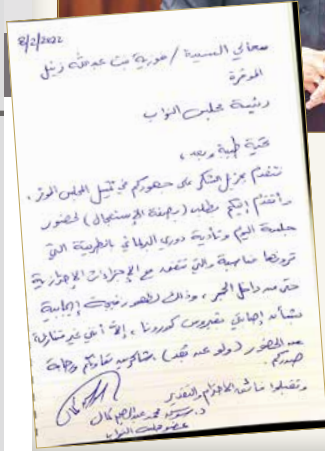 8/2/2022
معالي السيدة / فوزية بنت عبدالله زينل
الموقرة
رئيسة مجلس النواب
تحية طيبة وبعد ،
نتقدم بجزيل الشكر على جهودكم في تمثيل المجلس الموقر .
وأتقدم إليكم بطلب (بصفة الاستعجال) لحضور
جلسة اليوم وتأدية دوري البرلماني بالطريقة التي
ترونها مناسبة والتي تتفق مع الإجراءات الاحترازية
حتى من داخل الحجر ، وذلك لظهور نتيجة إيجابية
بشأن إصابتي بفيروس كورونا ، إلا أنني غير متنازلة
عن الحضور (ولو عن بعد) شاكرين تعاونكم ورحابة
صدركم .
وتفضلوا فائق الاحترام والتقدير
د. سوسن محمد عبدالرحيم كمال
عضو مجلس النواب